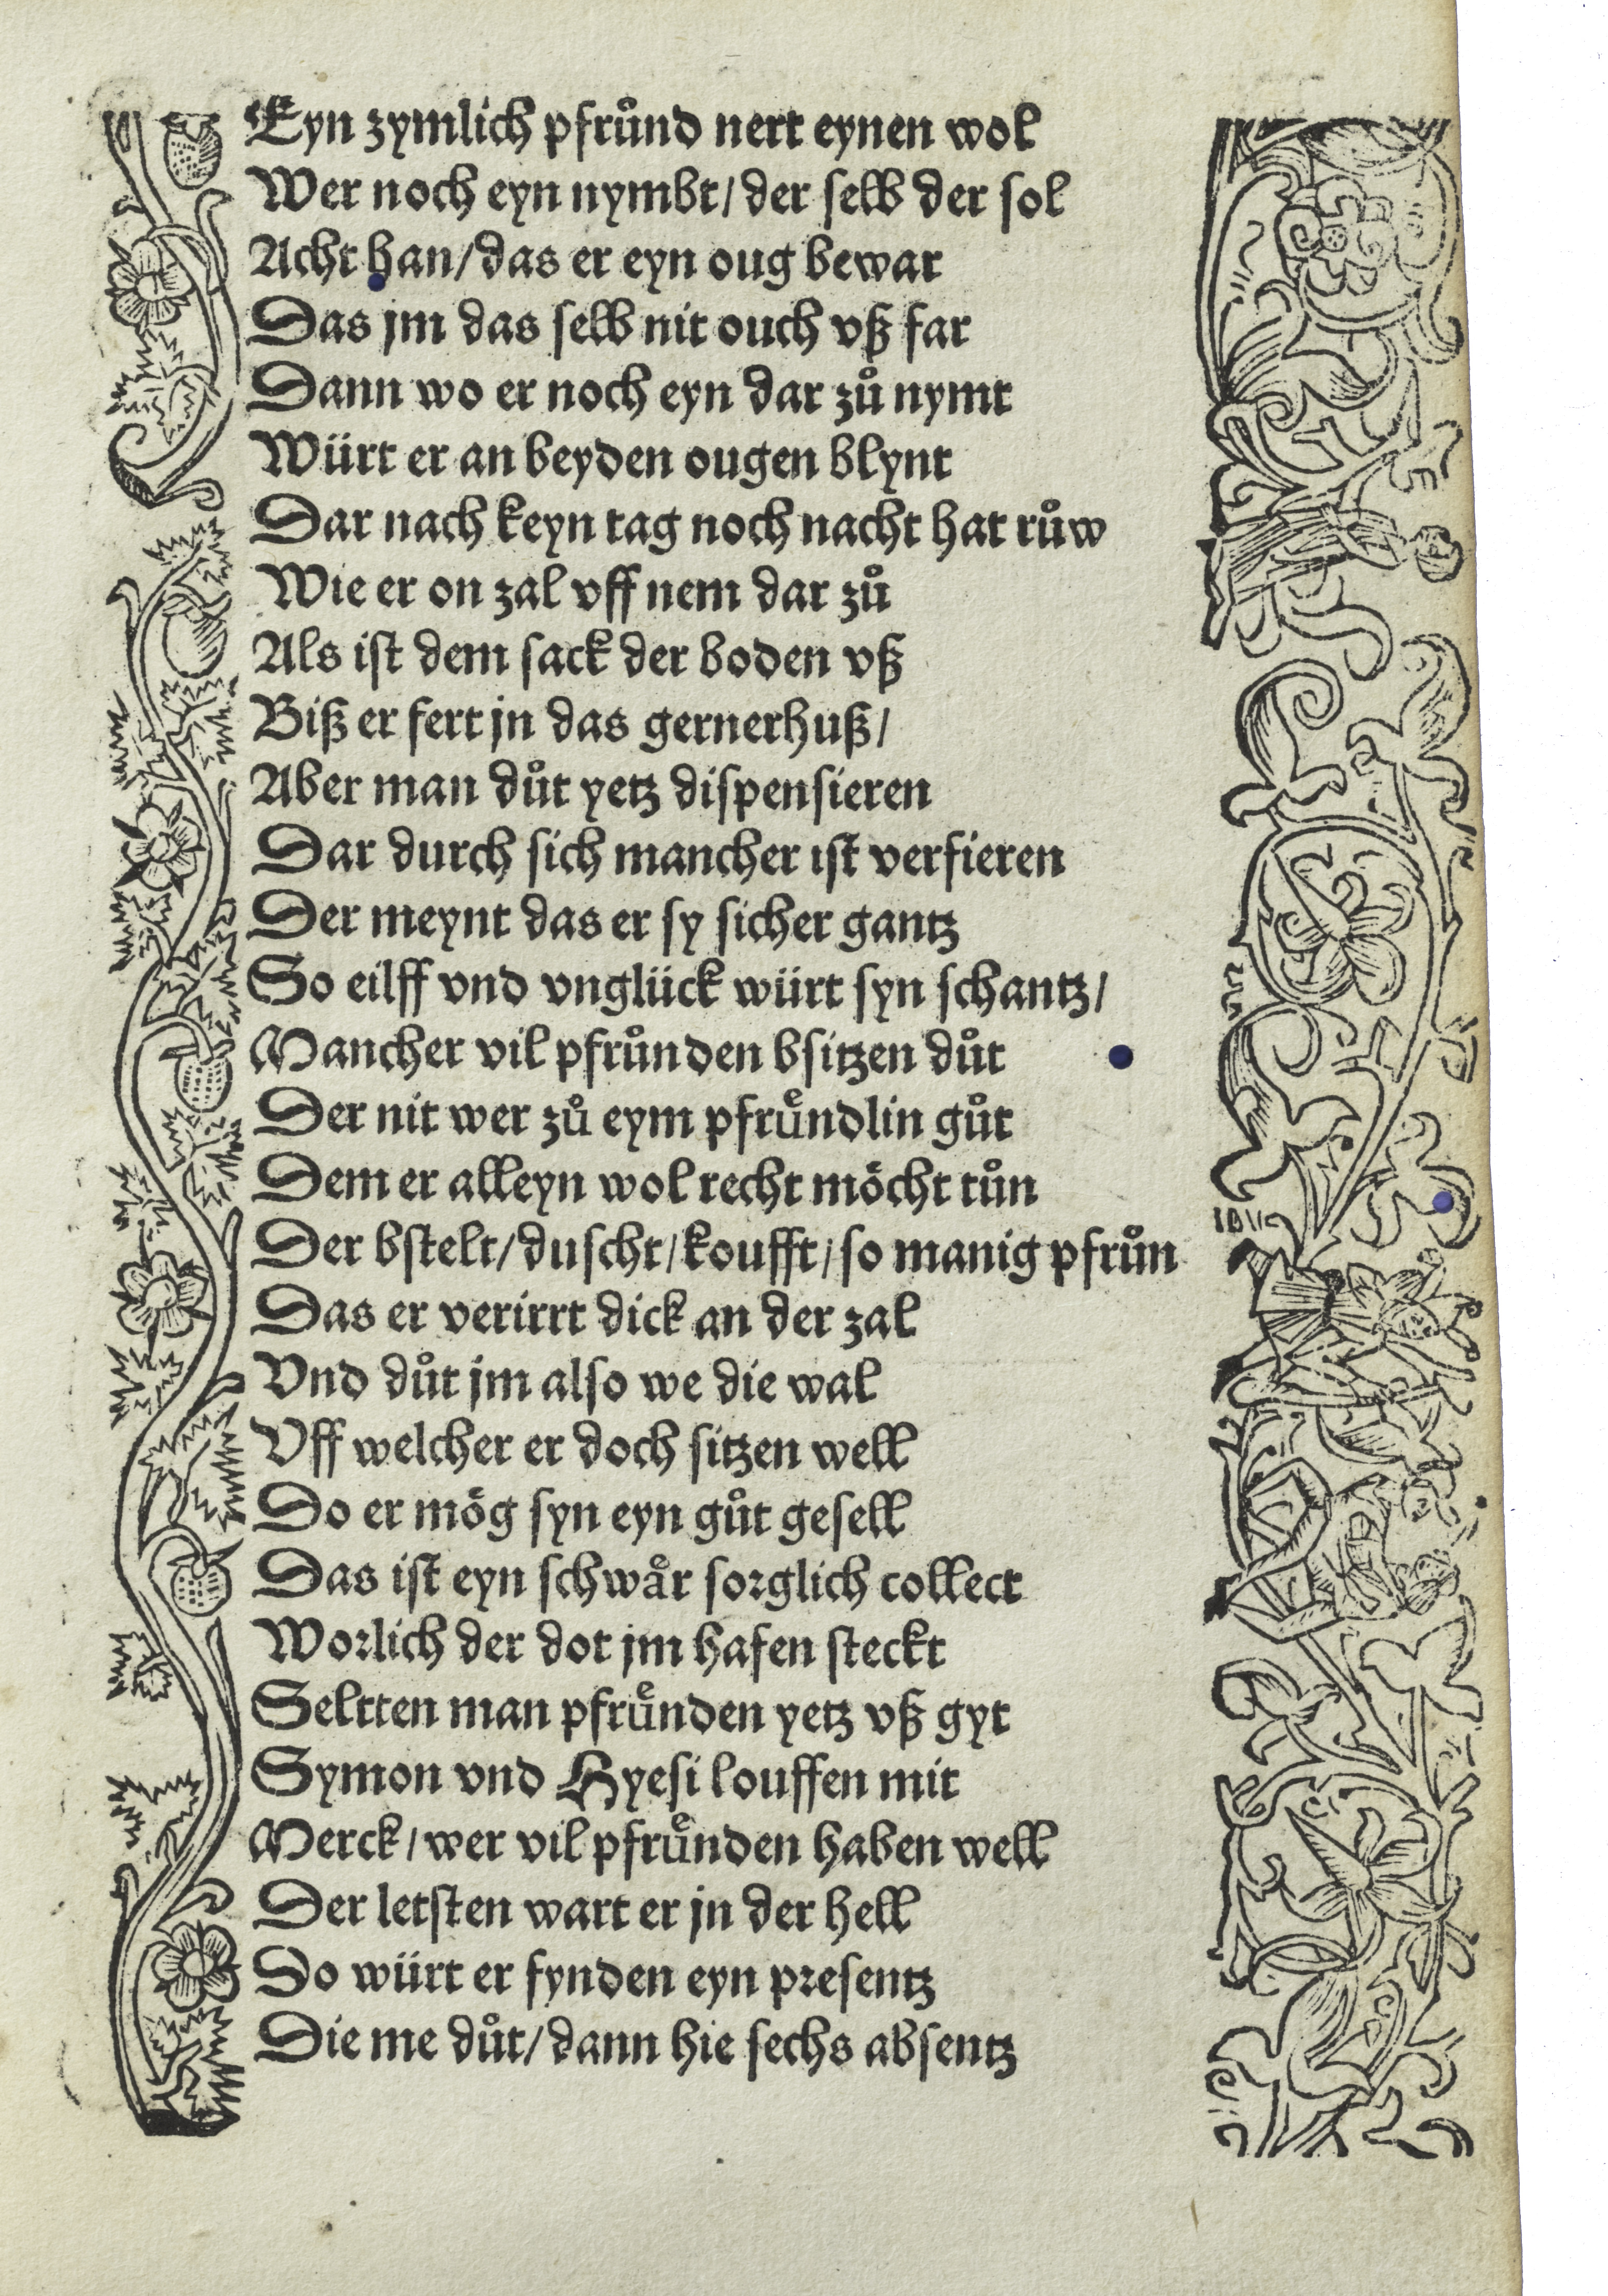 Eyn zymlich pfruͦnd nert eynen wol
Wer noch eyn nymbt/ der ſelb der ſol
Acht han/ das er eyn oug bewar
Das jm das ſelb nit ouch vß far
Dann wo er noch eyn dar zuͦ nymt
Würt er an beyden ougen blynt
Dar nach keyn tag noch nacht hat ruͦw
Wie er on zal vff nem dar zuͦ
Als iſt dem ſack der boden vß
Biß er fert jn das gernerhuß/
Aber man duͦt yetz diſpenſieren
Dar durch ſich mancher iſt verfieren
Der meynt das er ſy ſicher gantz
So eilff vnd vnglück würt ſyn ſchantz/
Mancher vil pfruͦnden bſitzen duͦt
Der nit wer zuͦ eym pfruͤndlin guͦt
Dem er alleyn wol recht moͤcht tuͦn
Der bſtelt/ duſcht/ koufft/ ſo manig pfruͦn
Das er verirrt dick an der zal
Vnd duͦt jm alſo we die wal
Vff welcher er doch ſitzen well
Do er moͤg ſyn eyn guͦt geſell
Das iſt eyn ſchwaͤr ſorglich collect
Worlich der dot jm hafen ſteckt
Seltten man pfruͤnden yetz vß gyt
Symon vnd Hyeſi louffen mit
Merck/ wer vil pfruͤnden haben well
Der letſten wart er jn der hell
Do würt er fynden eyn preſentz
Die me duͦt/ dann hie ſechs abſentz